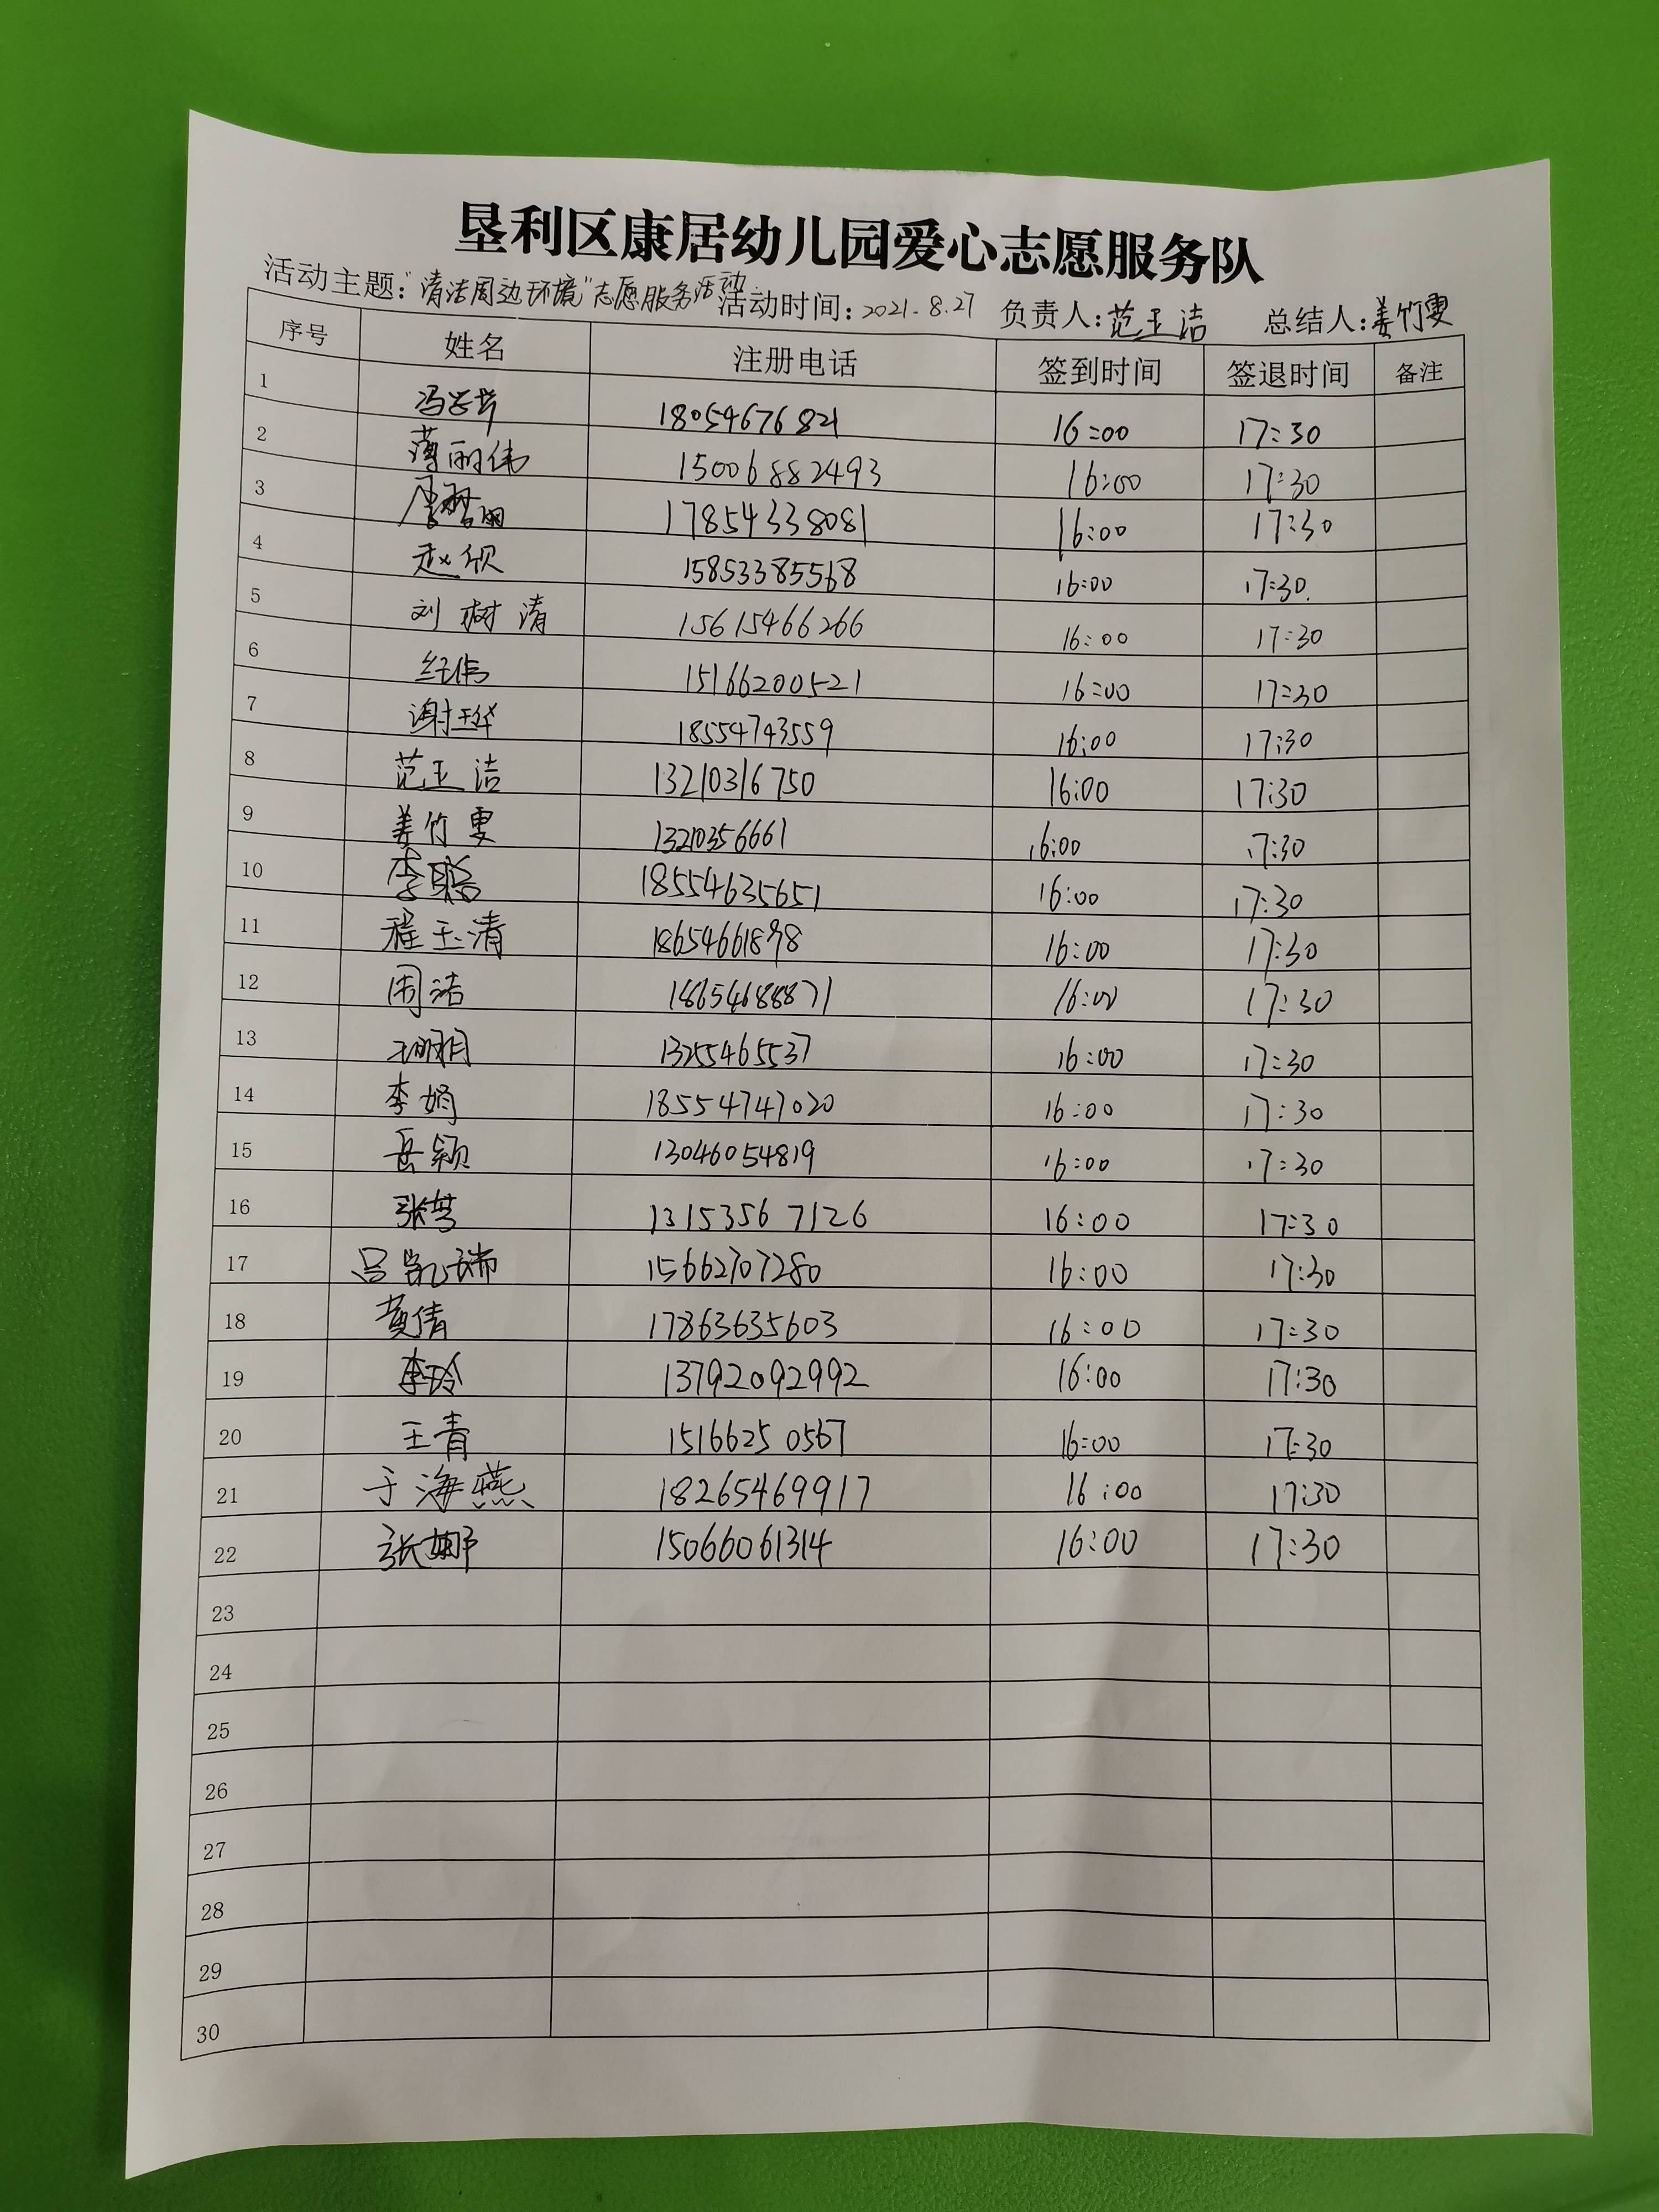 垦利区康居幼儿园爱心志愿服务队
活动主题：“清洁周边环境”志愿服务活动 活动时间：2021.8.27 负责人：范玉洁 总结人：姜竹雯
序号 姓名 注册电话 签到时间 签退时间 备注
1 18054676821 16:00 17:30
2 薄丽伟 15006882493 16:00 17:30
3 17854338081 16:00 17:30
4 赵欣 15853385568 16:00 17:30
5 刘树清 15615466266 16:00 17:30
6 15166200521 16:00 17:30
7 谢玉华 18554743559 16:00 17:30
8 范玉洁 13210316750 16:00 17:30
9 姜竹雯 13210356661 16:00 17:30
10 李聪 18554635651 16:00 17:30
11 程玉清 16:00 17:30
12 周洁 18654688871 16:00 17:30
13 13255465537 16:00 17:30
14 李娟 18554747020 16:00 17:30
15 岳颖 13046054819 16:00 17:30
16 张梦 13153567126 16:00 17:30
17 吕凯瑞 15662707280 16:00 17:30
18 黄倩 17863635603 16:00 17:30
19 李玲 13792092992 16:00 17:30
20 王青 15166250567 16:00 17:30
21 于海燕 18265469917 16:00 17:30
22 张娜 15066061314 16:00 17:30
23
24
25
26
27
28
29
30